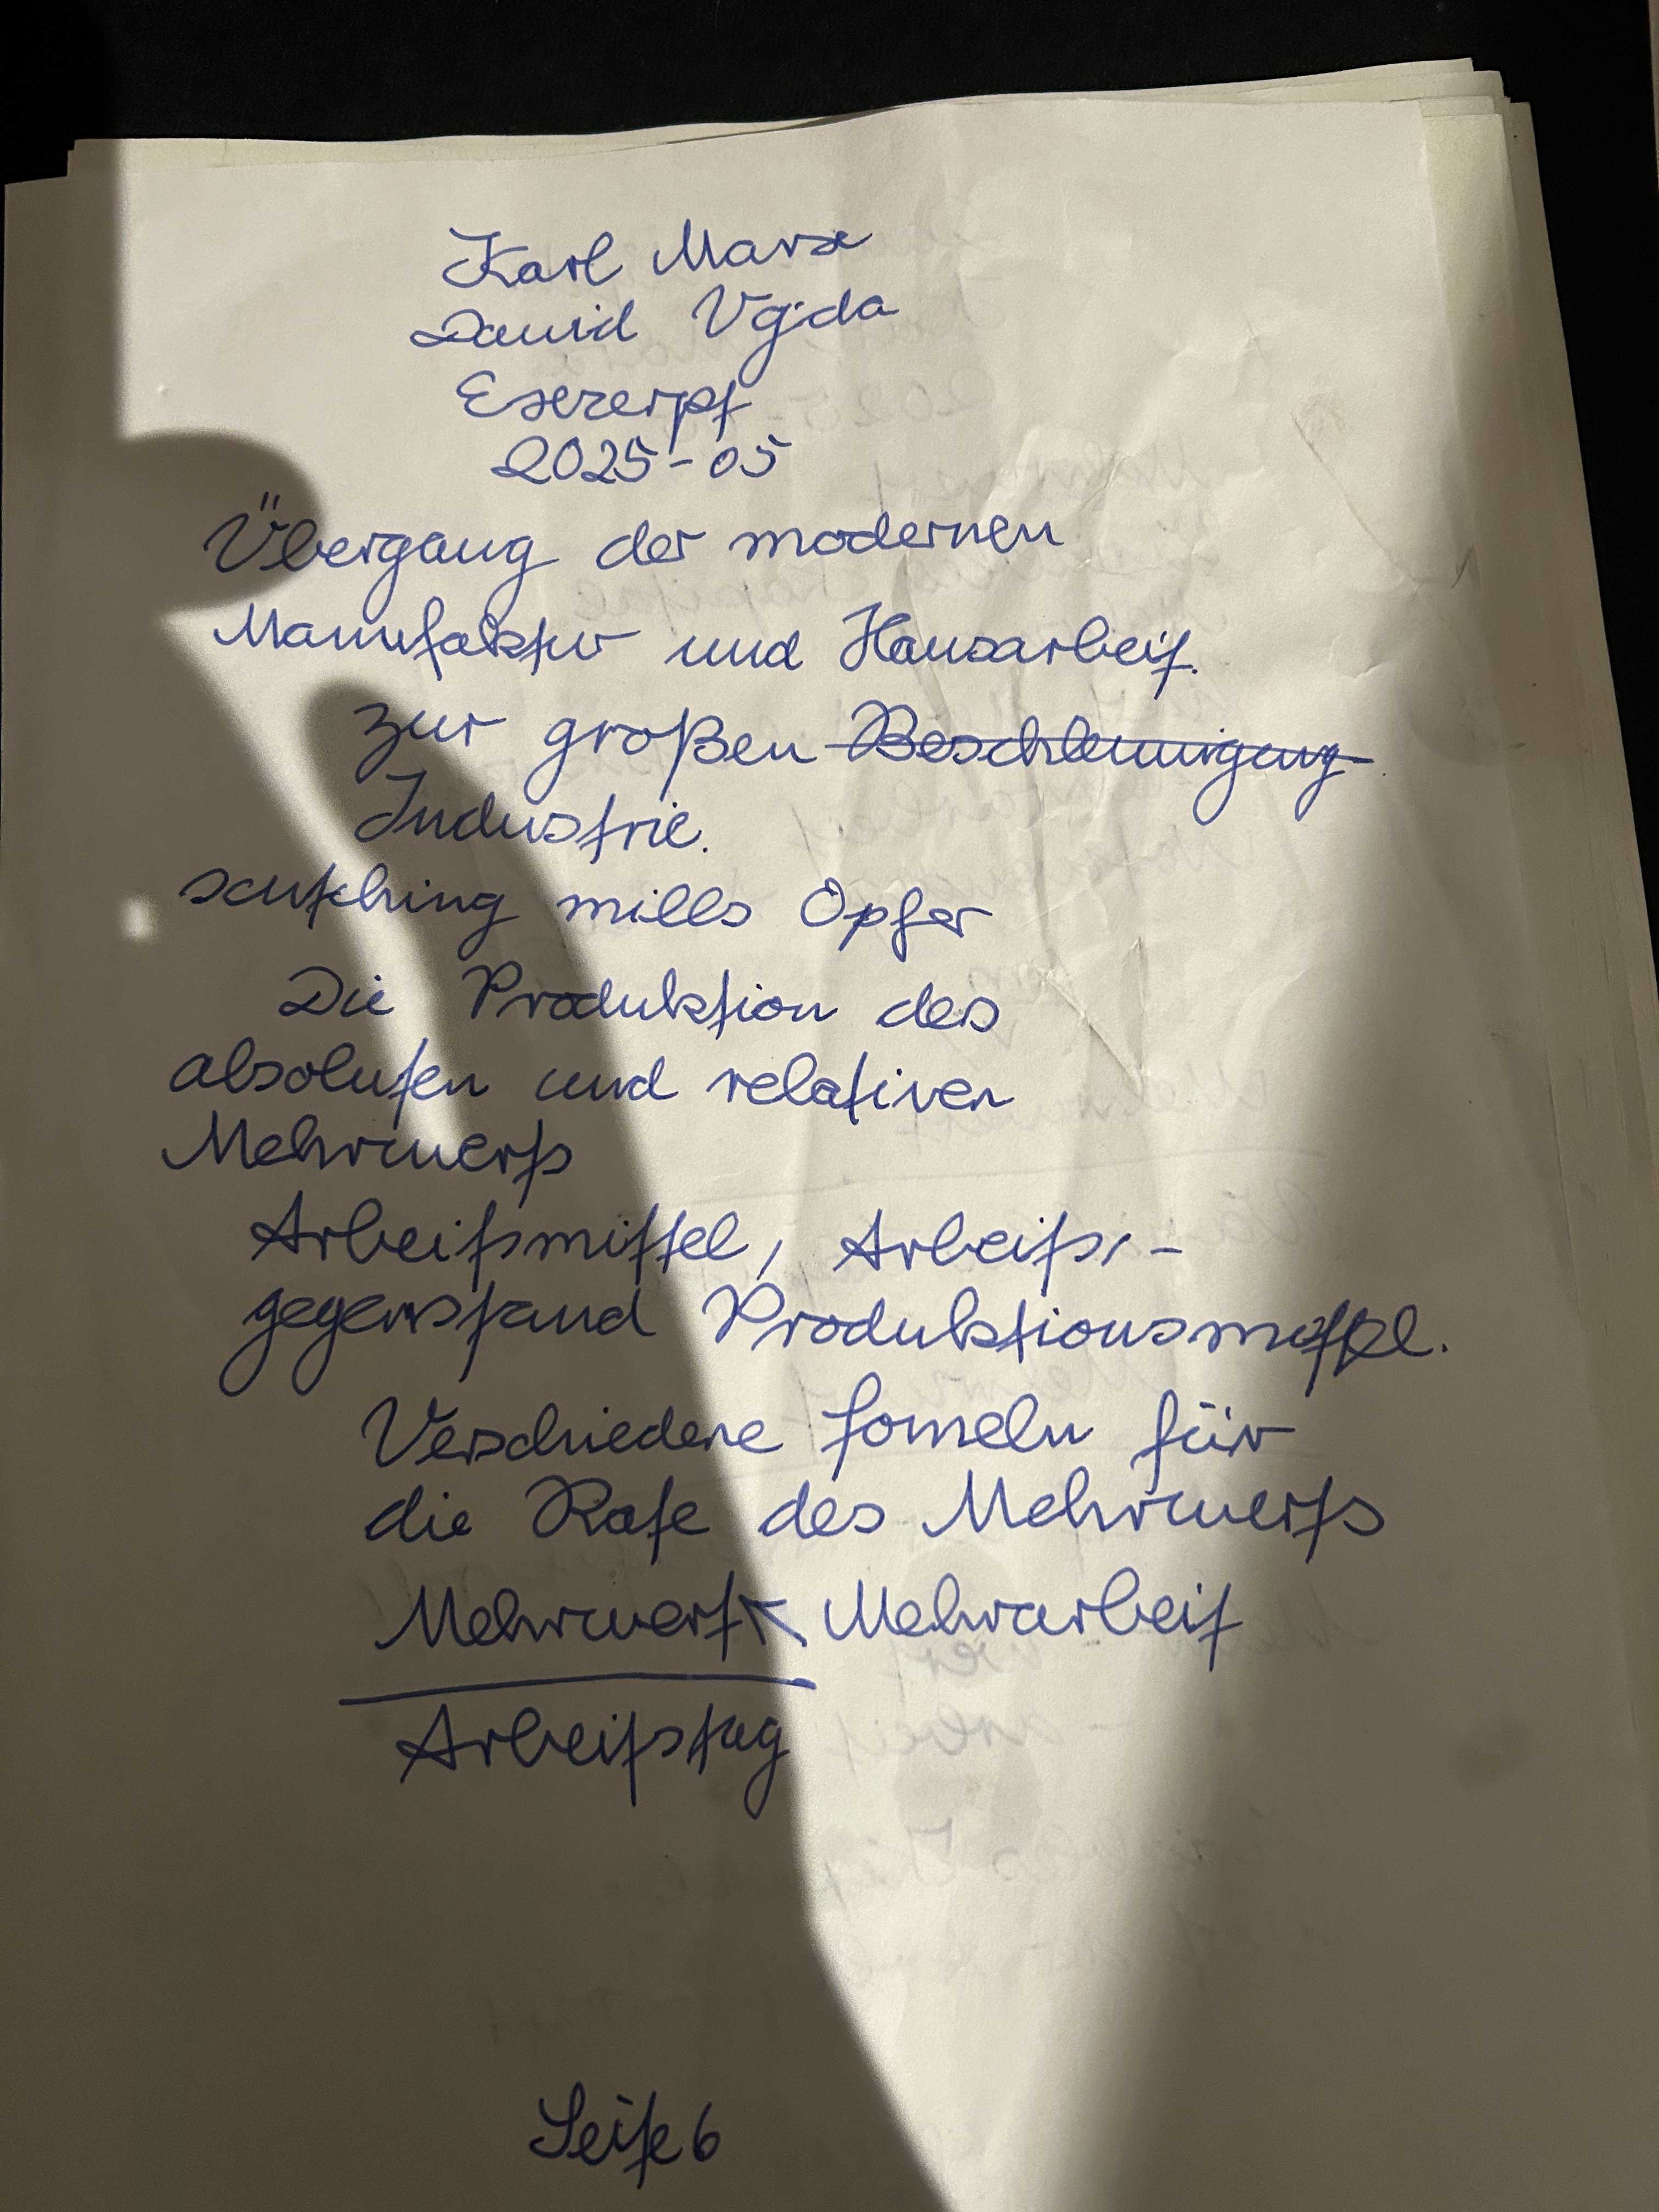 Karl Marx
David Vajda
Exzerpt
2025-05
Übergang der modernen
Manufaktur und Hausarbeit.
zur großen Beschleunigung
Industrie.
scutching mills Opfer
Die Produktion des
absoluten und relativen
Mehrwerts
Arbeitsmittel, Arbeits-
gegenstand Produktionsmittel.
Verschiedene Fomeln für
die Rate des Mehrwerts
Mehrwert Mehrarbeit
Arbeitstag
Seite 6